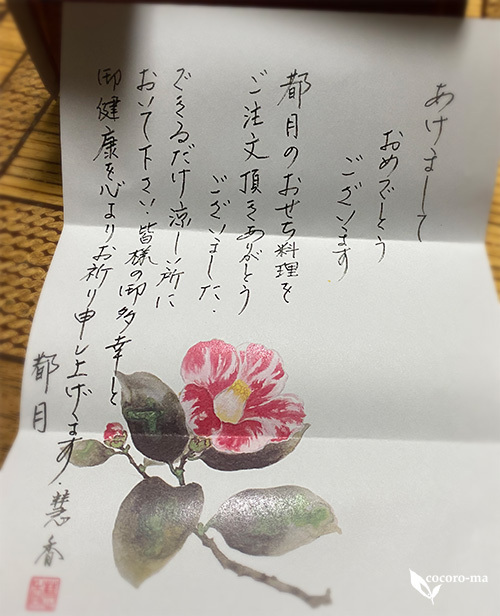 あけまして
おめでとう
ございます
都月のおせち料理を
ご注文頂きありがとう
ございました.
できるだけ涼しい所に
おいて下さい.皆様の御多幸と
御健康を心よりお祈り申し上げます.
都月
慧香
cocoro-ma